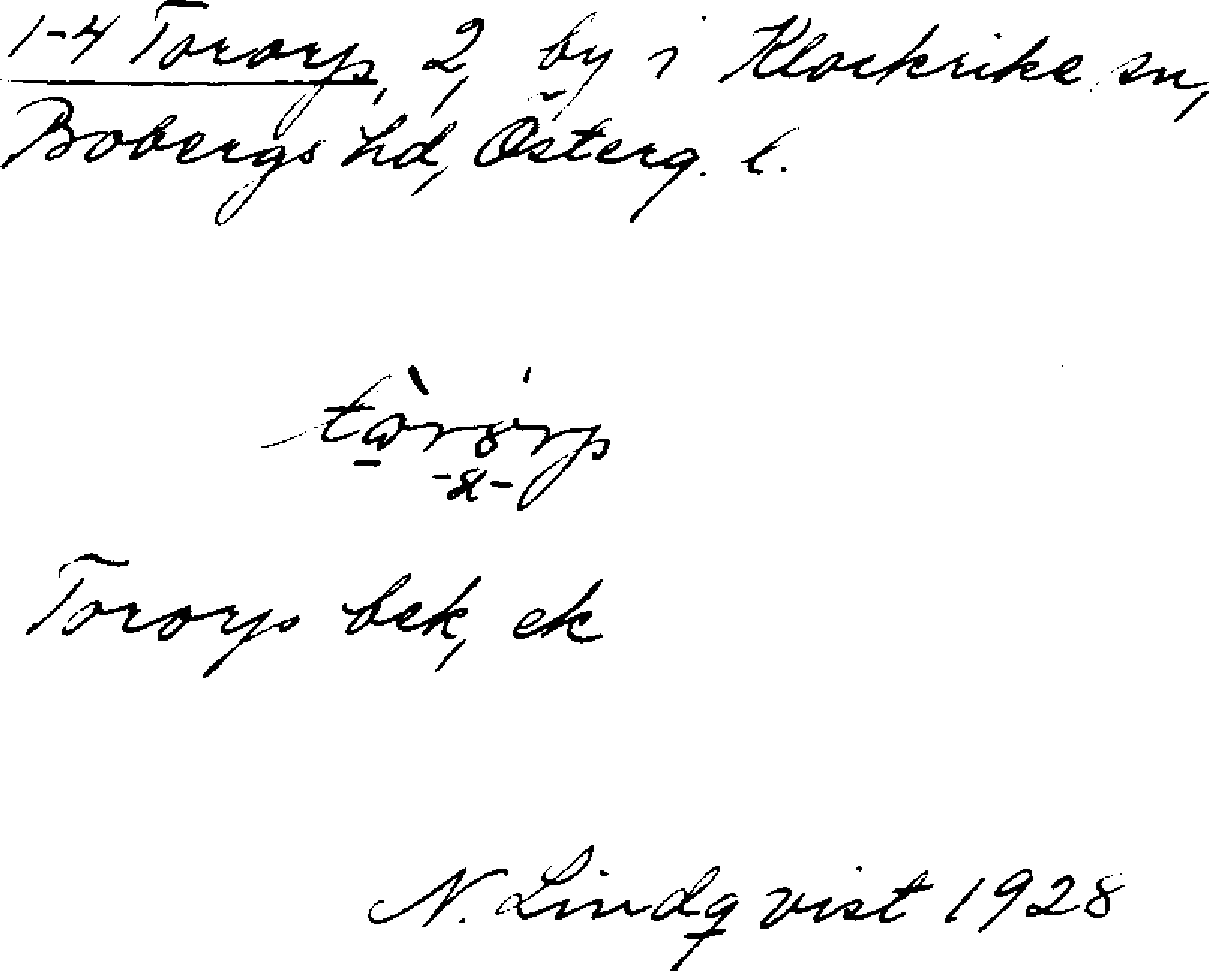 1-4 Tororp, 2, by i Klockrike sn,
Bobergs hd, Österg. l.
Tororp bek, ek
N. Lindqvist 1928